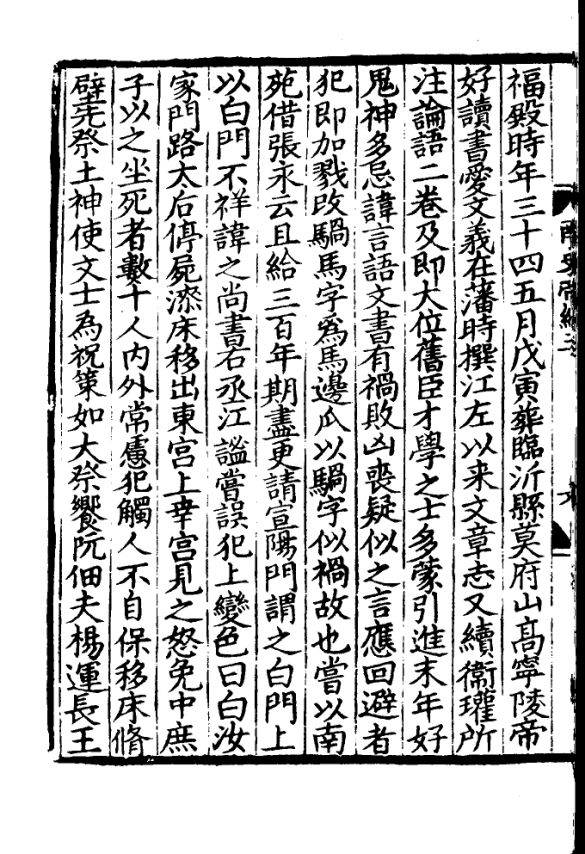 福殿時年三十四五月戊寅葬臨沂縣莫府山高寧陵帝
好讀書愛文義在藩時撰江左以来文章志又續衞瓘所
注論語二卷及即大位舊臣才學之士多蒙引進末年好
鬼神多忌諱言語文書有禍敗凶喪疑似之言應回避者
犯即加戮改騧馬字爲馬邊瓜以騧字似禍故也嘗以南
苑借張永云且給三百年期盡更請宣陽門謂之白門上
以白門不祥諱之尚書右丞江謐嘗誤犯上變色曰白汝
家門路太后停屍漆床移出東宮上幸宮見之怒免中庶
子以之坐死者數十人内外常慮犯觸人不自保移床脩
壁先祭土神使文士為祝策如大祭饗阮佃夫楊運長王